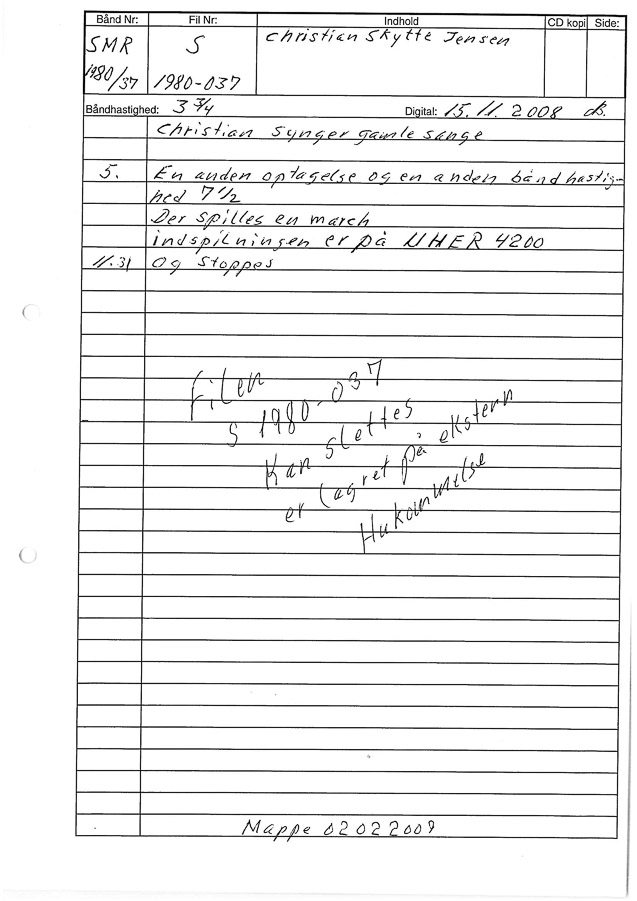 Bånd Nr: Fil Nr: Indhold CD kopi Side:
SMR S Christian Skytte Jensen
1980/37 1980-037
Båndhastighed: 3 3/4 Digital: 15.11.2008
Christian synger gamle sange
5. En anden optagelse og en anden båndhastig-
hed 7 1/2
Der spilles en march
indspilningen er på UHER 4200
11.31 og stoppes
Filen
S 1980-037
Kan slettes
er lagret på ekstern
Hukommelse
Mappe 02022009